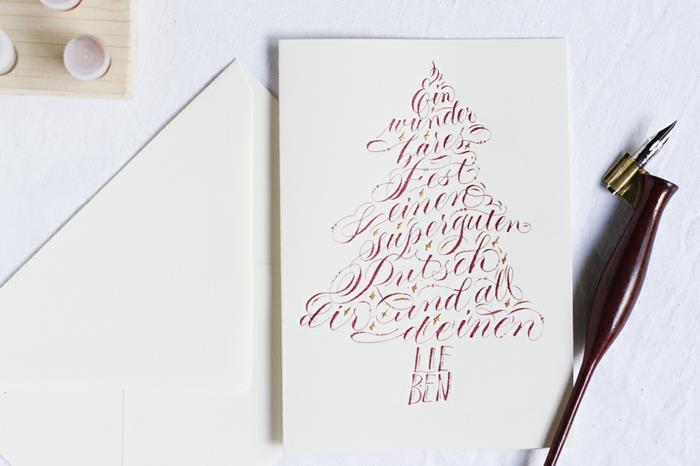 Ein
wunder
bares
Fest
& einen
superguten
Rutsch
dir und all
deinen
LIE
BEN